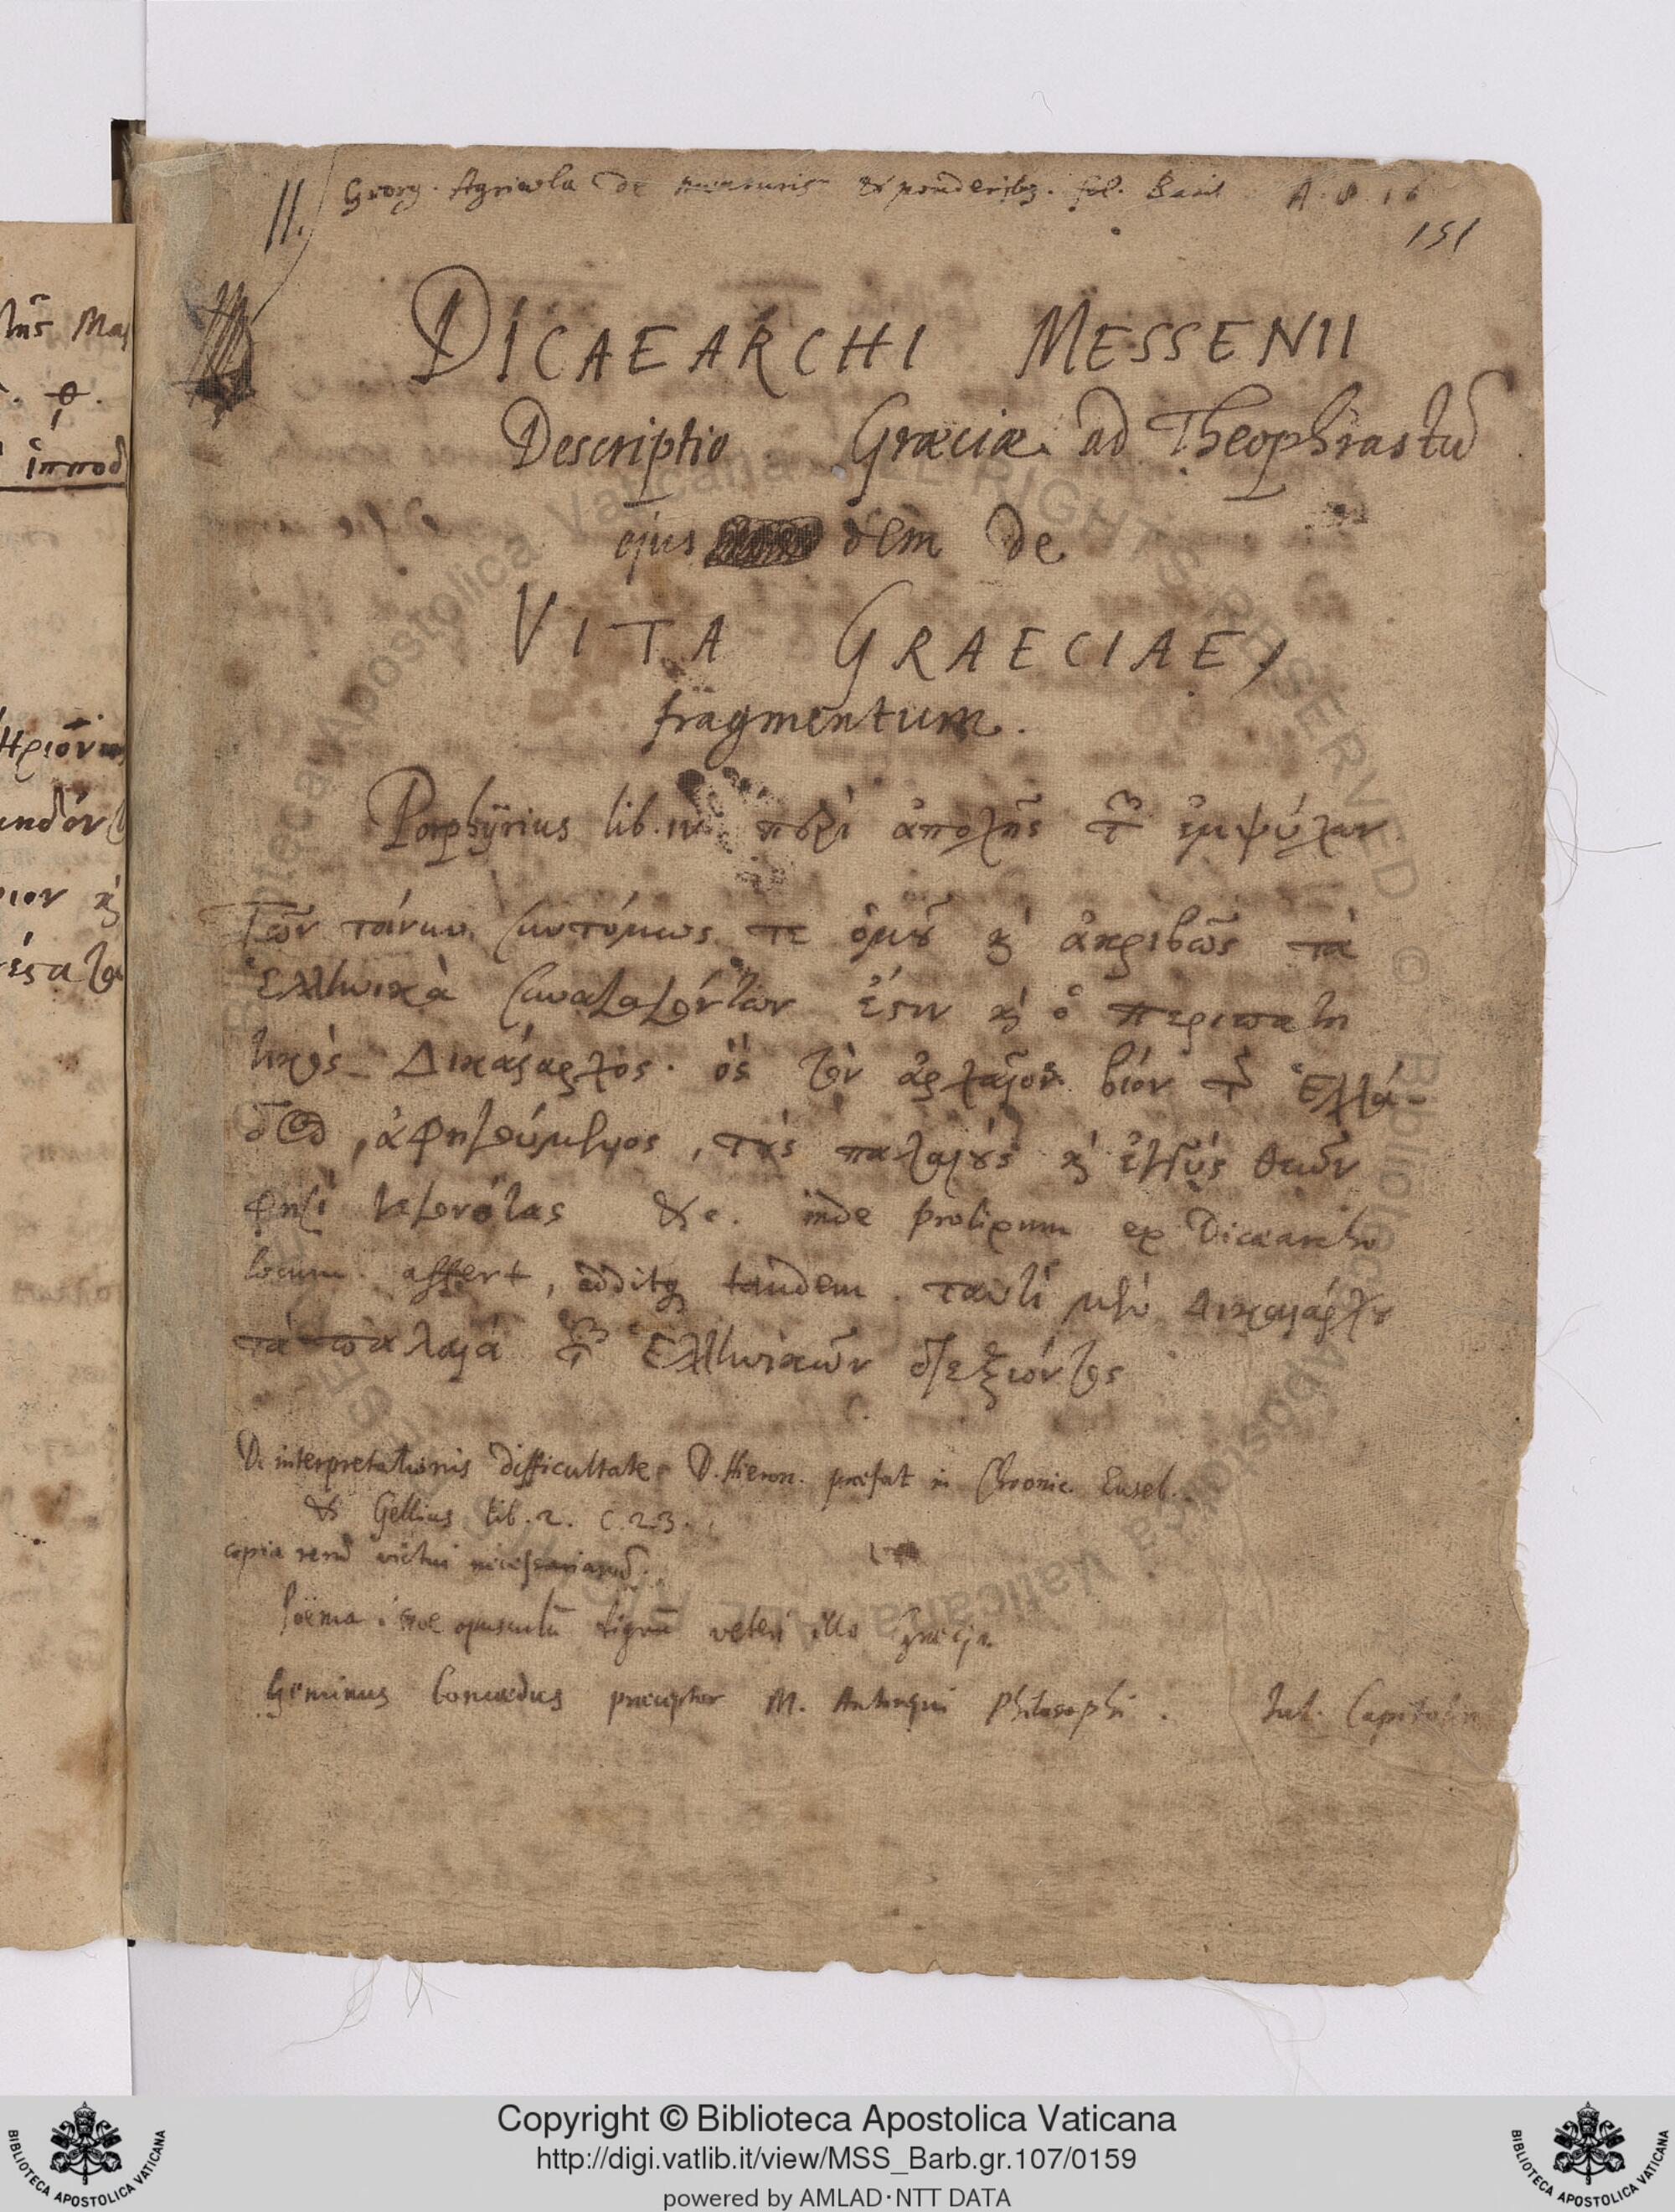 11. Georg. Agricola de mensuris & ponderibq. fol. Basil A. 8. 16
151
DICAEARCHI MESSENII
Descriptio Græciæ ad Theophrastū
ejus dem de
VITA GRAECIAE,
fragmentum.
Porphÿrius lib. IV. περὶ ἀποχῆς τῶν ἐμψύχων
Τῶν τοίνυν συντόμως τε ὁμοῦ καὶ ἀκριβῶς τὰ
Ἑλληνικὰ συναγαγόντων ἔστιν καὶ ὁ περιπατη
τικὸς Δικαίαρχος. ὃς τὸν ἀρχαῖον βίον τῆς Ἑλλά-
δος, ἀφηγούμενος, τοὺς παλαιοὺς καὶ ἐγγὺς θεῶν
φησὶ γεγονότας &c. inde prolixum ex Dicæarcho
locum affert, additq; tandem. ταυτὶ μὲν Δικαιάρχου
τὰ παλαιὰ τῶν Ἑλληνικῶν διεξιόντος
De interpretationis difficultate D. Hieron. præfat in Chronic. Euseb.
& Gellius lib. 2. c. 23.
copia rerū victui necessariarū.
Poëma sive opusculū dignū veteri illo Græcia
Geminus Comœdus præceptor M. Antonini Philosophi. Jul. Capitolin
ἱπποδ
Copyright © Biblioteca Apostolica Vaticana
http://digi.vatlib.it/view/MSS_Barb.gr.107/0159
powered by AMLAD·NTT DATA
BIBLIOTECA APOSTOLICA VATICANA
BIBLIOTECA APOSTOLICA VATICANA